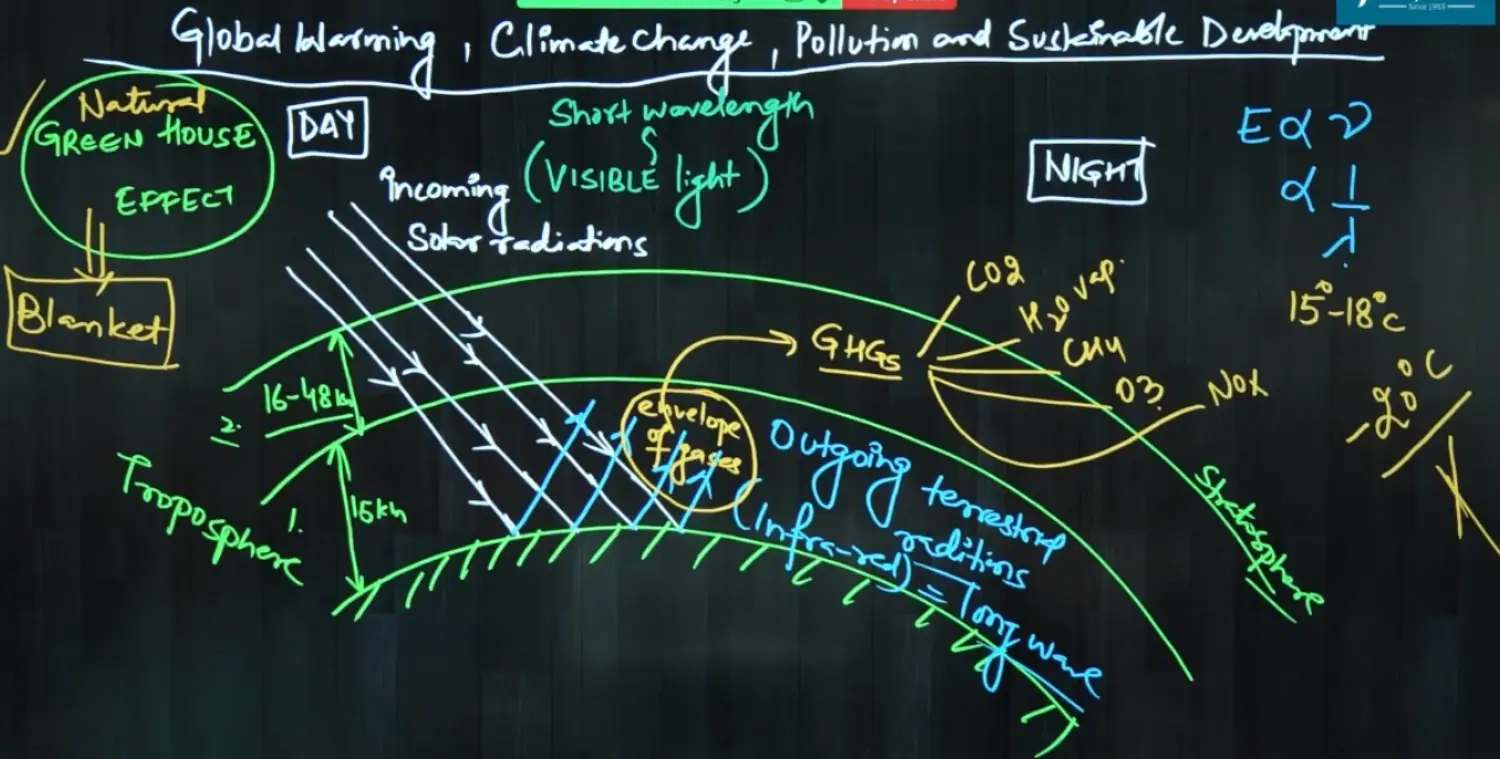 Since 1959
Global Warming, Climate Change, Pollution and Sustainable Development
Natural
GREEN HOUSE
EFFECT
Blanket
DAY
Short wavelength
(VISIBLE light)
Incoming
Solar radiations
NIGHT
E α ν
α 1/λ
15°-18°C
-20°C
GHGs
CO2
H2O vap.
CH4
O3
NOX
envelope
of
gases
16-48km
2.
1.
15km
Troposphere
Outgoing terrestrial
raditions
(Infra-red) = Long wave
Stratosphere